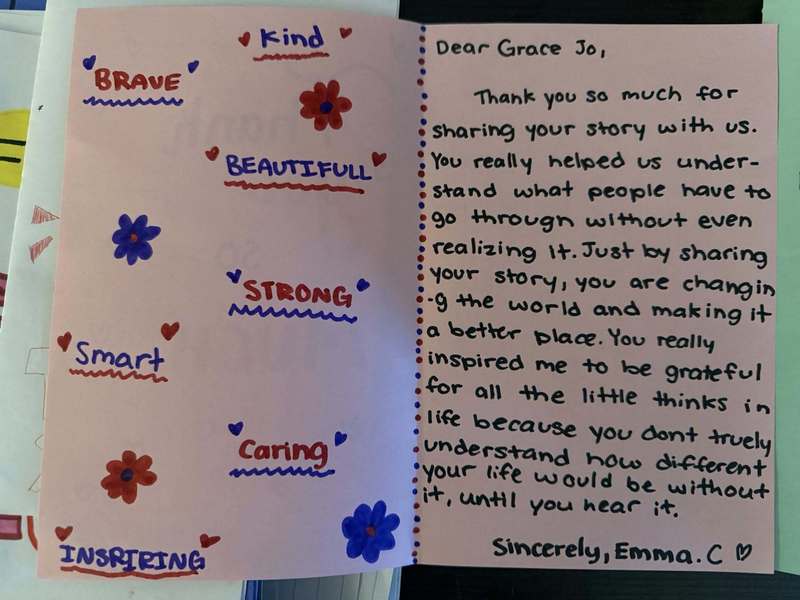 Kind
BRAVE
BEAUTIFULL
STRONG
Smart
Caring
INSPRIRING
Dear Grace Jo,
Thank you so much for
sharing your story with us.
You really helped us under-
stand what people have to
go through without even
realizing it. Just by sharing
your story, you are changin
-g the world and making it
a better place. You really
inspired me to be grateful
for all the little thinks in
life because you dont truely
understand how different
your life would be without
it, until you hear it.
Sincerely, Emma. C ♡